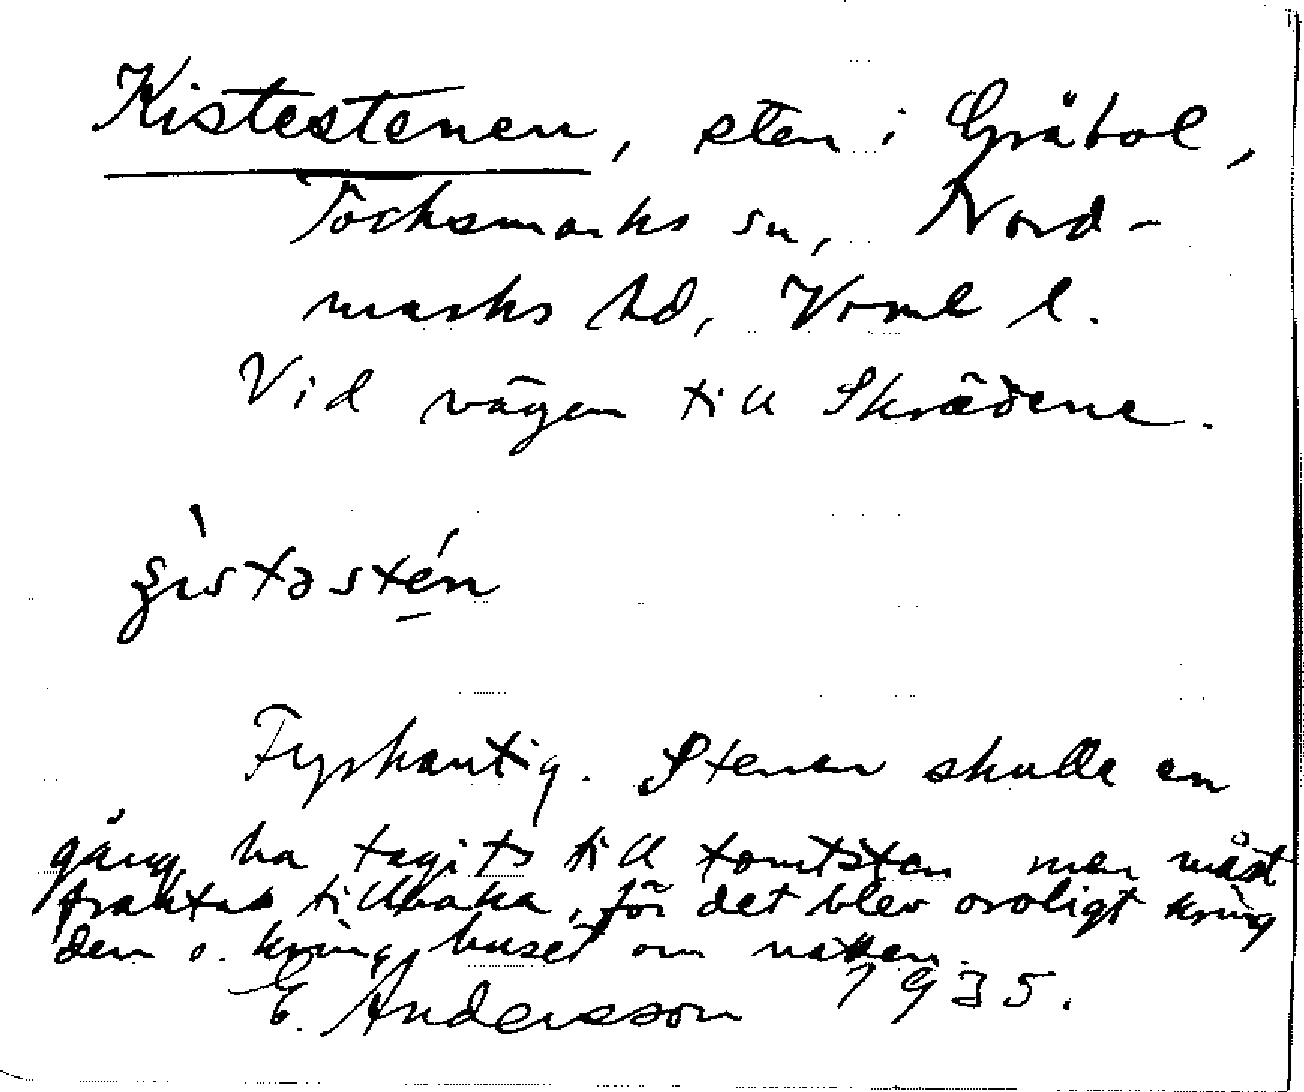 Kistestenen, sten i Gräbol,
Töcksmarks sn, Nord-
marks hd, Vrml l.
Vid vägen till Skrädene.
Fyrkantig. Stenen skulle en
gång ha tagits till tomtsten men måst
fraktas tillbaka, för det blev oroligt kring
den o. kring huset om natten.
E. Andersson 1935.